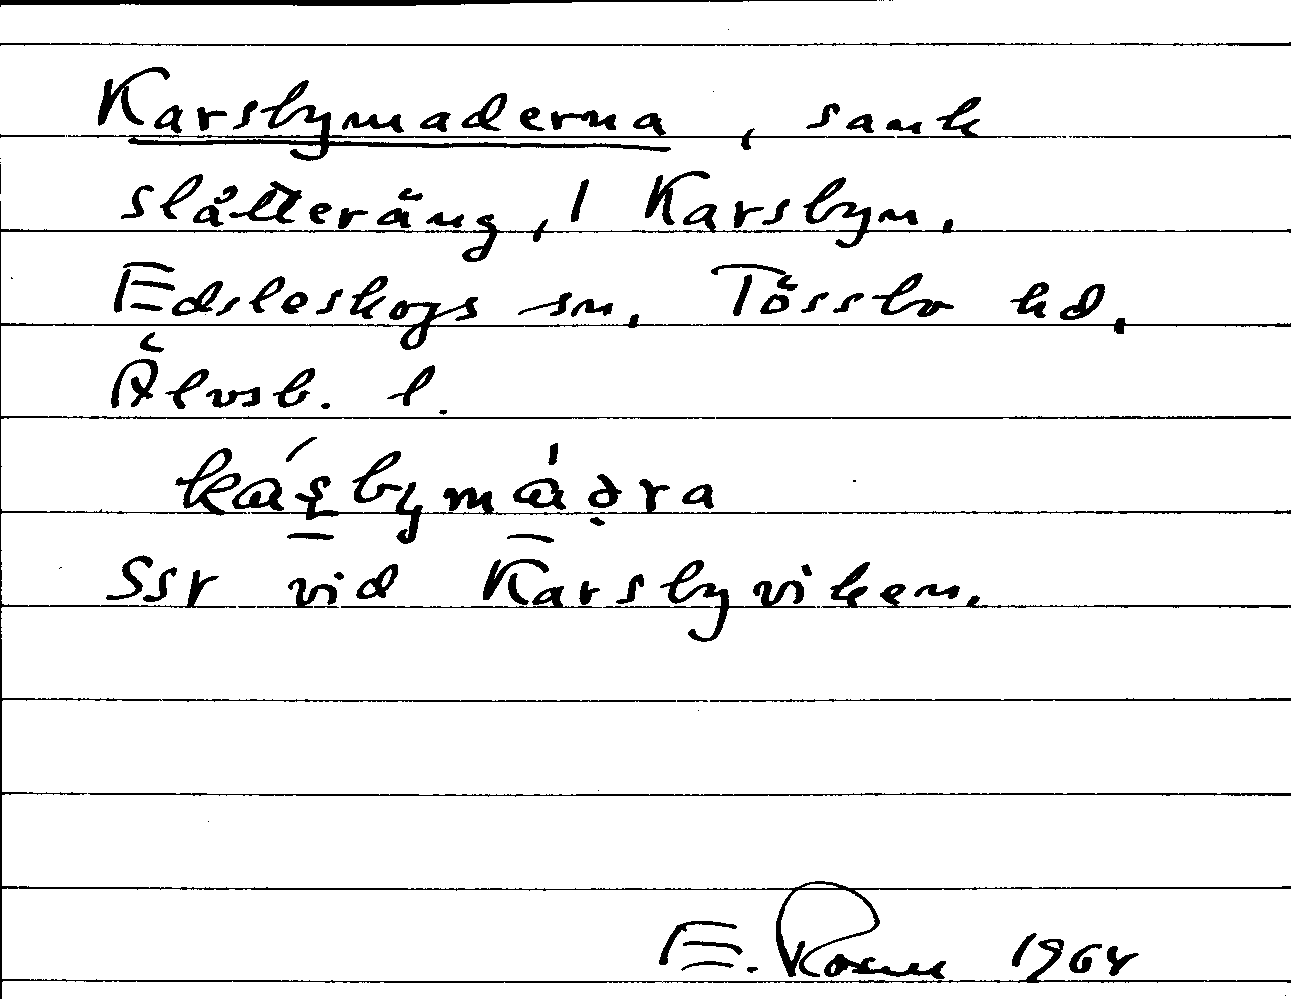 Karsbymaderna, sank
slåtteräng, l Karsbyn.
Edsleskogs sn. Tössbo hd.
Älvsb. l.
SSV vid Karsbyviken.
E. Rosell 1964